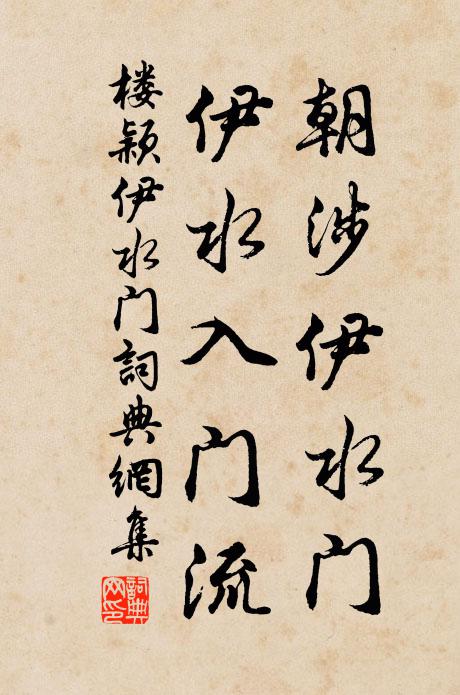 朝涉伊水门
伊水入门流
楼颖伊水门詞典網集
詞典网印